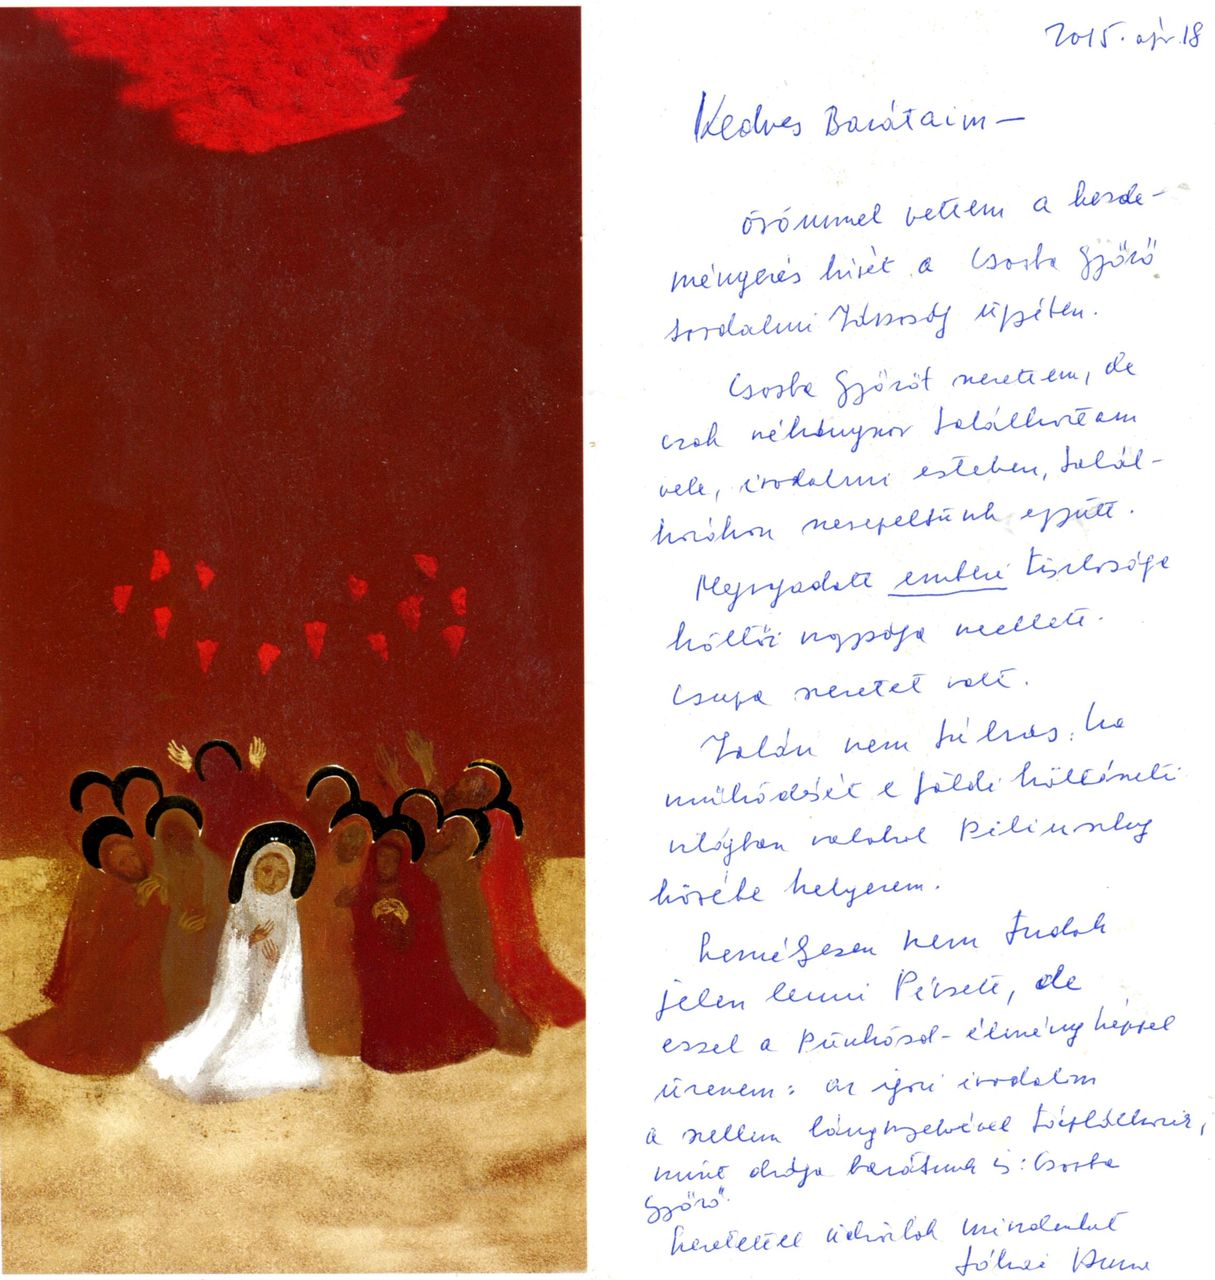 2015. ápr. 18
Kedves Barátaim –
örömmel vettem a kezde-
ményezés hírét a Csorba Győző
Irodalmi Társaság ügyében.
Csorba Győzőt szerettem, de
csak néhányszor találkoztam
vele, irodalmi esteken, talál-
kozókon szerepeltünk együtt.
Megragadott emberi tisztasága
költői nagysága mellett.
Csupa szeretet volt.
Talán nem túlzás, ha
működését e földi költészeti
világban valahol Pilinszky
közébe helyezem.
Személyesen nem tudok
jelen lenni Pécsett, de
ezzel a Pünkösd-élmény képpel
üzenem: az igazi irodalom
a szellem lángnyelvével táplálkozik,
mint drága barátunk is: Csorba
Győző.
Szeretettel üdvözlök mindenkit
Jókai Anna